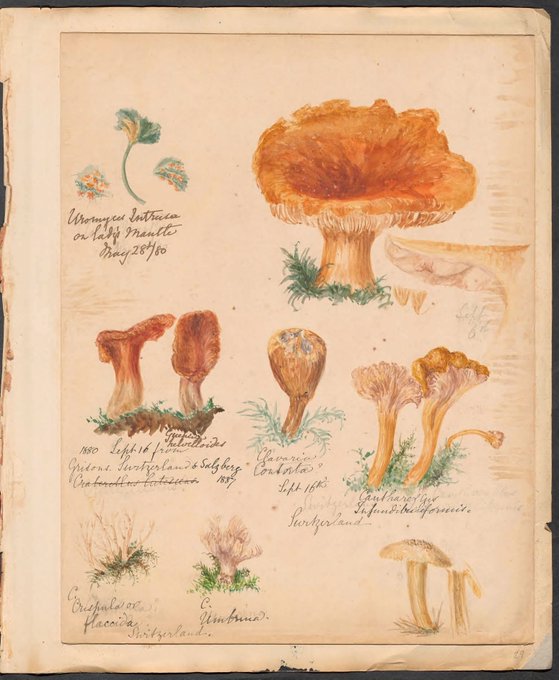 Uromyces Intrusa
on Lady's Mantle
May 28th/80
Sept
1880 Sept 16 from
Guepinia
helvelloides
Grisons. Switzerland & Salzberg
Craterellus lutescens 1887
Clavaria
Contorta?
Sept 16th
Switzerland
Cantharellus
Infundibuliformis.
C.
Crispula or
flaccida.
Switzerland.
C.
Umbrina.
29